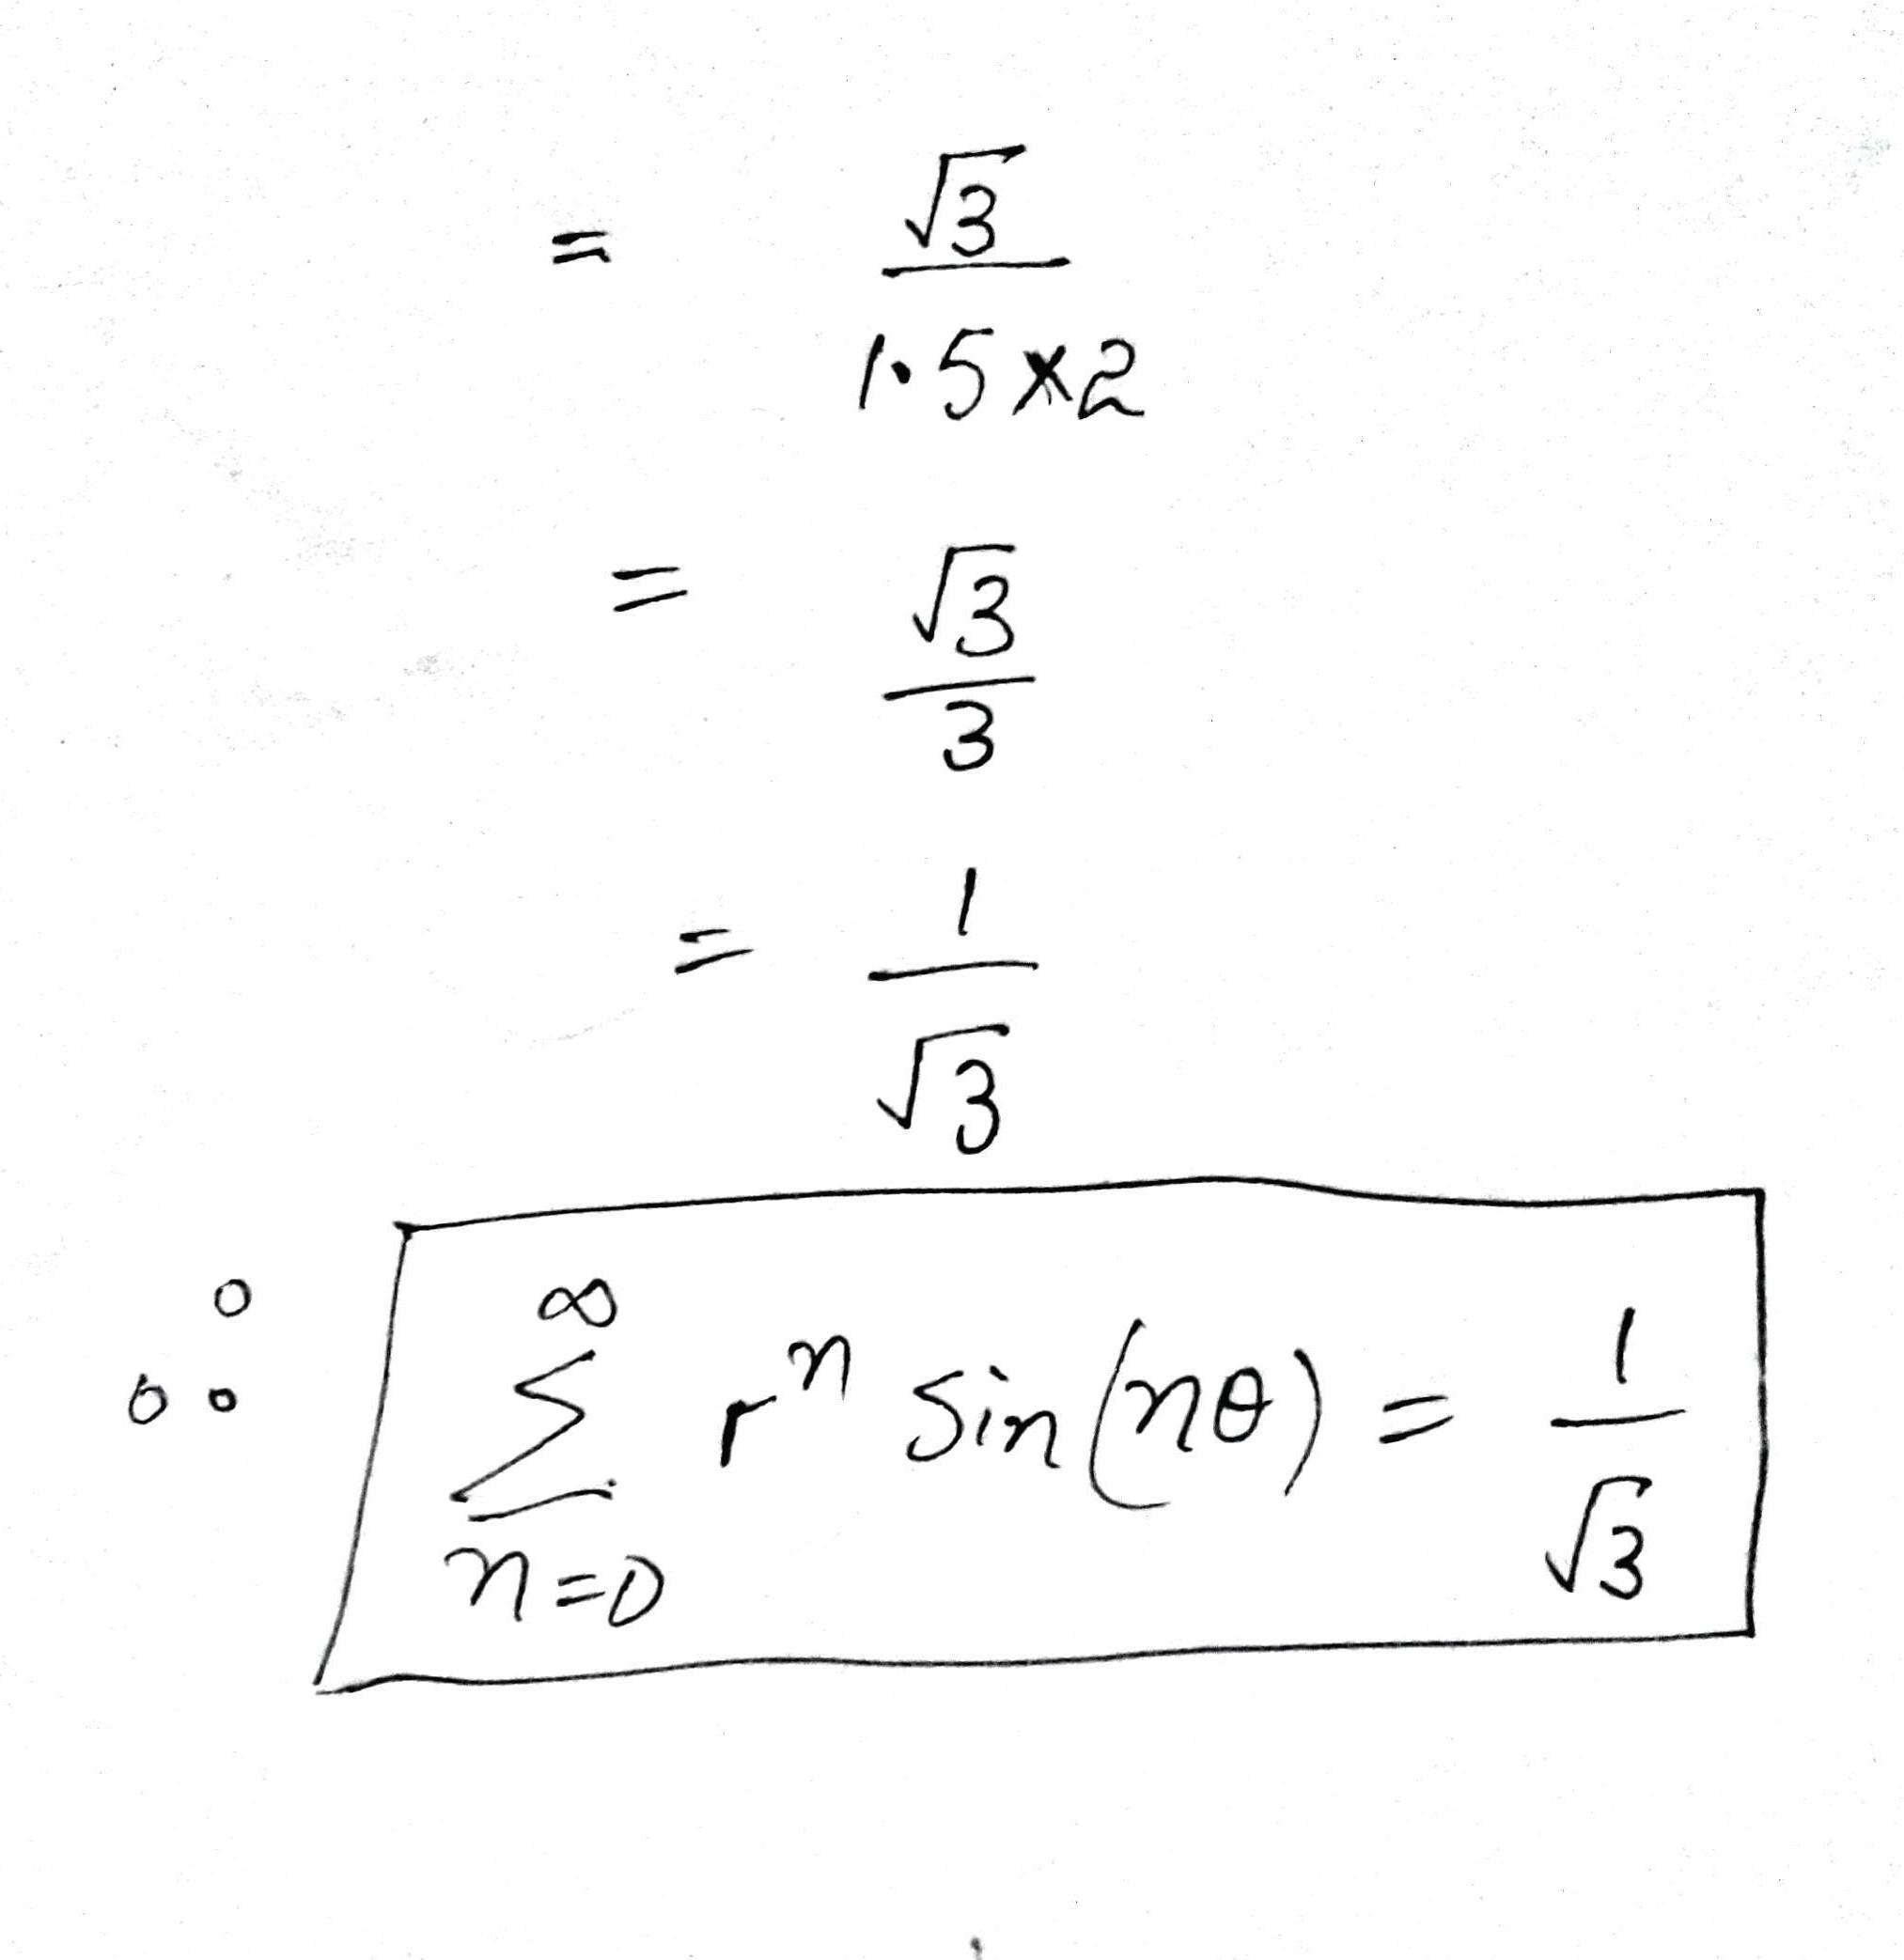 = √3 / 1.5×2
= √3 / 3
= 1 / √3
∴ ∞ ∑ n=0 rⁿ sin(nθ) = 1 / √3